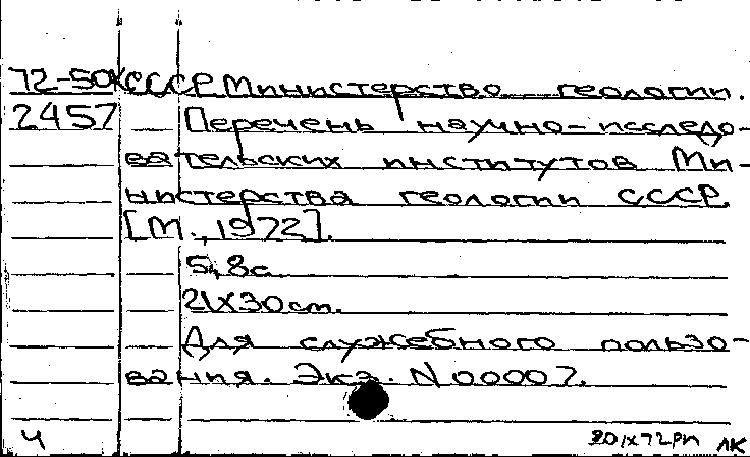 72-50К СССР Министерство геологии.
2457 Перечень научно-исследо-
вательских институтов Ми-
нистерства геологии СССР
[М., 1972].
5, 8с.
21Х30см.
Для служебного пользо-
вания. Экз. N 00007.
Ч 20 IX 72 РП ЛК